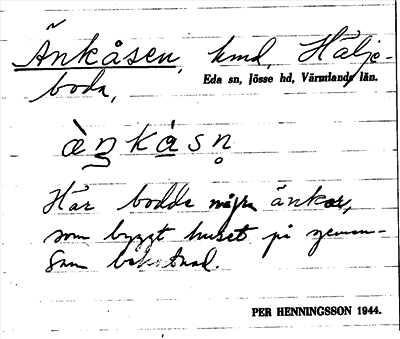 Änkåsen, hmd, Hälje-
Eda sn, Jösse hd, Värmlands län.
boda,
àŋkåsn̥
Här bodde några änkor,
som byggt huset på gemen-
sam bekostnad.
PER HENNINGSSON 1944.